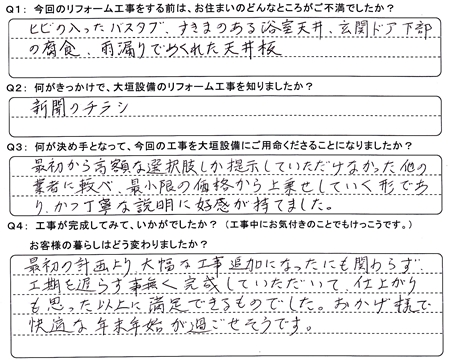 Q1：今回のリフォーム工事をする前は、お住まいのどんなところがご不満でしたか？
ヒビの入ったバスタブ、すきまのある浴室天井、玄関ドア下部
の腐食、雨漏りでめくれた天井板
Q2：何がきっかけで、大垣設備のリフォーム工事を知りましたか？
新聞のチラシ
Q3：何が決め手となって、今回の工事を大垣設備にご用命くださることになりましたか？
最初から高額な選択肢しか提示していただけなかった他の
業者に較べ、最小限の価格から上乗せしていく形であ
り、かつ丁寧な説明に好感が持てました。
Q4：工事が完成してみて、いかがでしたか？（工事中にお気付きのことでもけっこうです。）
お客様の暮らしはどう変わりましたか？
最初の計画より大幅な工事追加になったにも関わらず
工期を遅らす事無く完成していただいて、仕上がり
も思った以上に満足できるものでした。おかげ様で
快適な年末年始が過ごせそうです。